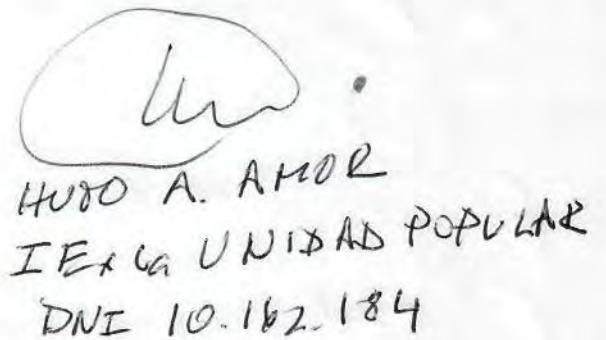 HUGO A. AMOR
IEx la UNIDAD POPULAR
DNI 10.162.184